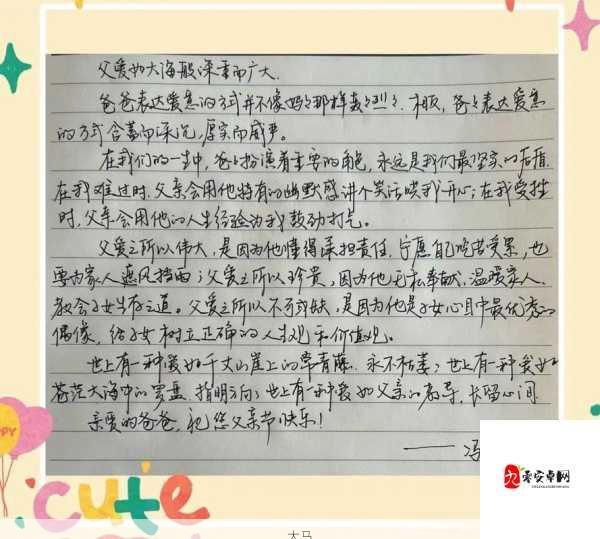 父爱如大海般深重而广大.
爸爸表达爱意的方式并不像妈妈那样轰轰烈烈、相反,爸爸表达爱意
的方式含蓄而深沉,厚实而威严。
在我们的一生中,爸爸扮演着重要的角色,永远是我们最坚实的后盾.
在我难过时.父亲会用他特有的幽默感讲个笑话哄我开心;在我受挫
时,父亲会用他的人生经验为我鼓劲打气。
父爱之所以伟大,是因为他懂得承担责任.宁愿自己吃苦受累,也
要为家人遮风挡雨;父爱之所以珍贵,因为他无私奉献,温暖家人.
教会子女生存之道。父爱之所以不可或缺,是因为他是子女心目中最优秀的
偶像,给子女树立正确的人生观和价值观。
世上有一种爱如千丈山崖上的常青藤.永不枯萎;世上有一种爱如
苍茫大海中的罗盘.指明方向;世上有一种爱如父亲的教导,长留心间
亲爱的爸爸,祝您父亲节快乐!
——冯
PPY
cute
零安卓网
大马